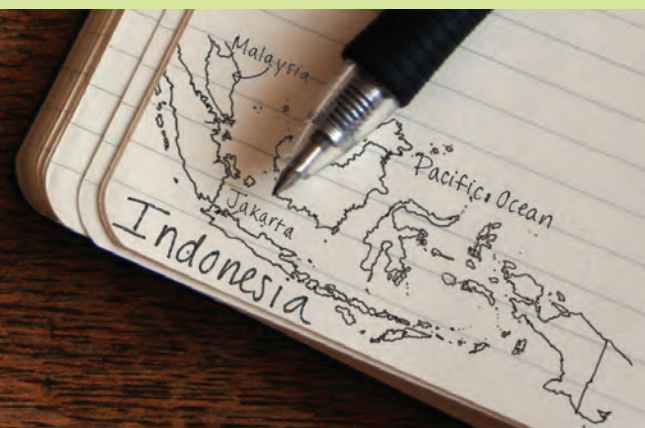 Malaysia
Pacific Ocean
Jakarta
Indonesia